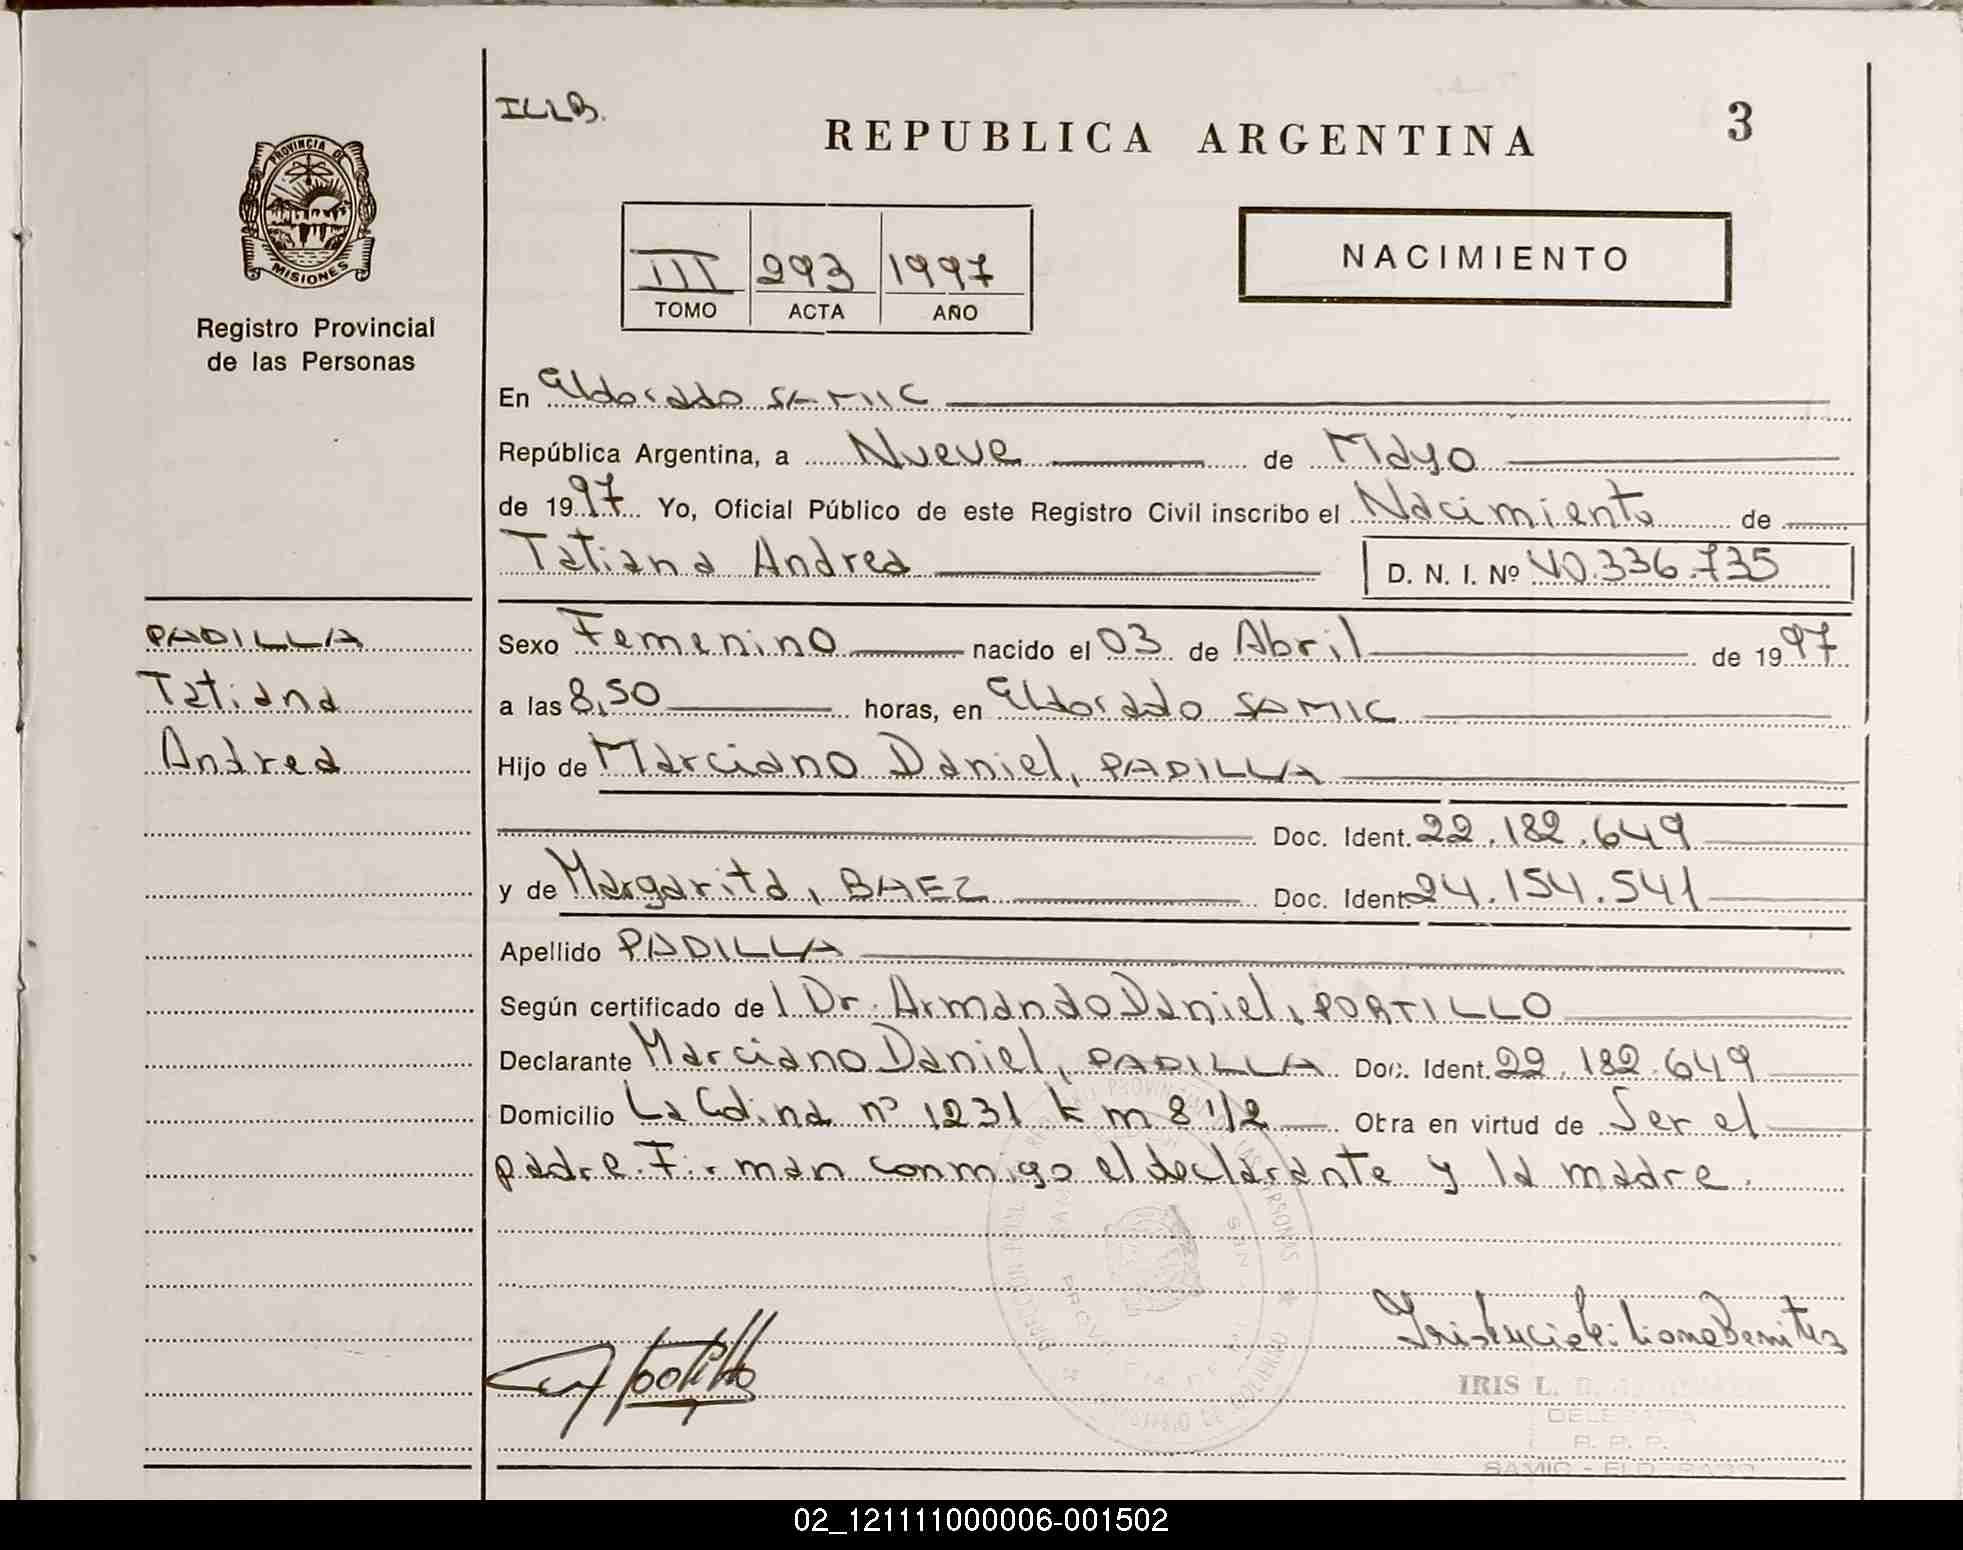 ILLB.
REPUBLICA ARGENTINA
3
PROVINCIA DE
MISIONES
Registro Provincial
de las Personas
III 293 1997
TOMO ACTA AÑO
NACIMIENTO
En Eldorado SAMIC
República Argentina, a Nueve de Mayo
de 1997 Yo, Oficial Público de este Registro Civil inscribo el Nacimiento de
Tatiana Andrea
D. N. I. Nº 40.336.735
PADILLA
Tatiana
Andrea
Sexo Femenino nacido el 03 de Abril de 1997
a las 8,50 horas, en Eldorado SAMIC
Hijo de Marciano Daniel, PADILLA
Doc. Ident. 22.182.649
y de Margarita, BAEZ Doc. Ident. 24.154.541
Apellido PADILLA
Según certificado de l Dr. Armando Daniel, PORTILLO
Declarante Marciano Daniel, PADILLA Doc. Ident. 22.182.649
Domicilio La Colina nº 1231 km 8 1/2 Obra en virtud de Ser el
padre. Firman conmigo el declarante y la madre.
Iris Lucia Liliana Benitez
IRIS L.
DELEGADA
R. P. P.
SAMIC - ELDORADO
02_121111000006-001502